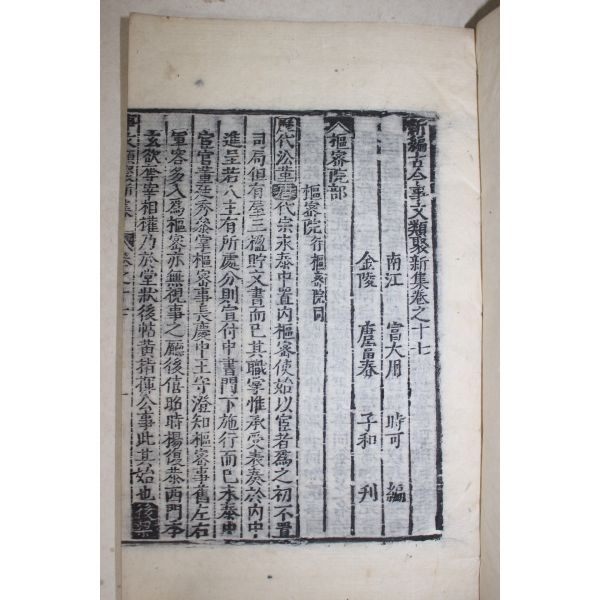 新編古今事文類聚新集卷之十七
南江 富大用 時可 編
金陵 唐富春 子和 刊
樞密院部
樞密院 行樞密院同
歷代沿革 代宗永泰中置內樞密使始以宦者爲之初不置
司局但有屋三楹貯文書而已其職掌惟承受表奏於內中
進呈若人主有所處分則宣付中書門下施行而已永泰中
宦官董廷秀參掌樞密事長慶中王守澄知樞密事舊左右
軍容多入爲樞密亦無視事之廳後僖昭時楊復恭西門季
玄欲奪宰相權乃於堂狀後帖黃指揮公事此其始也 後梁